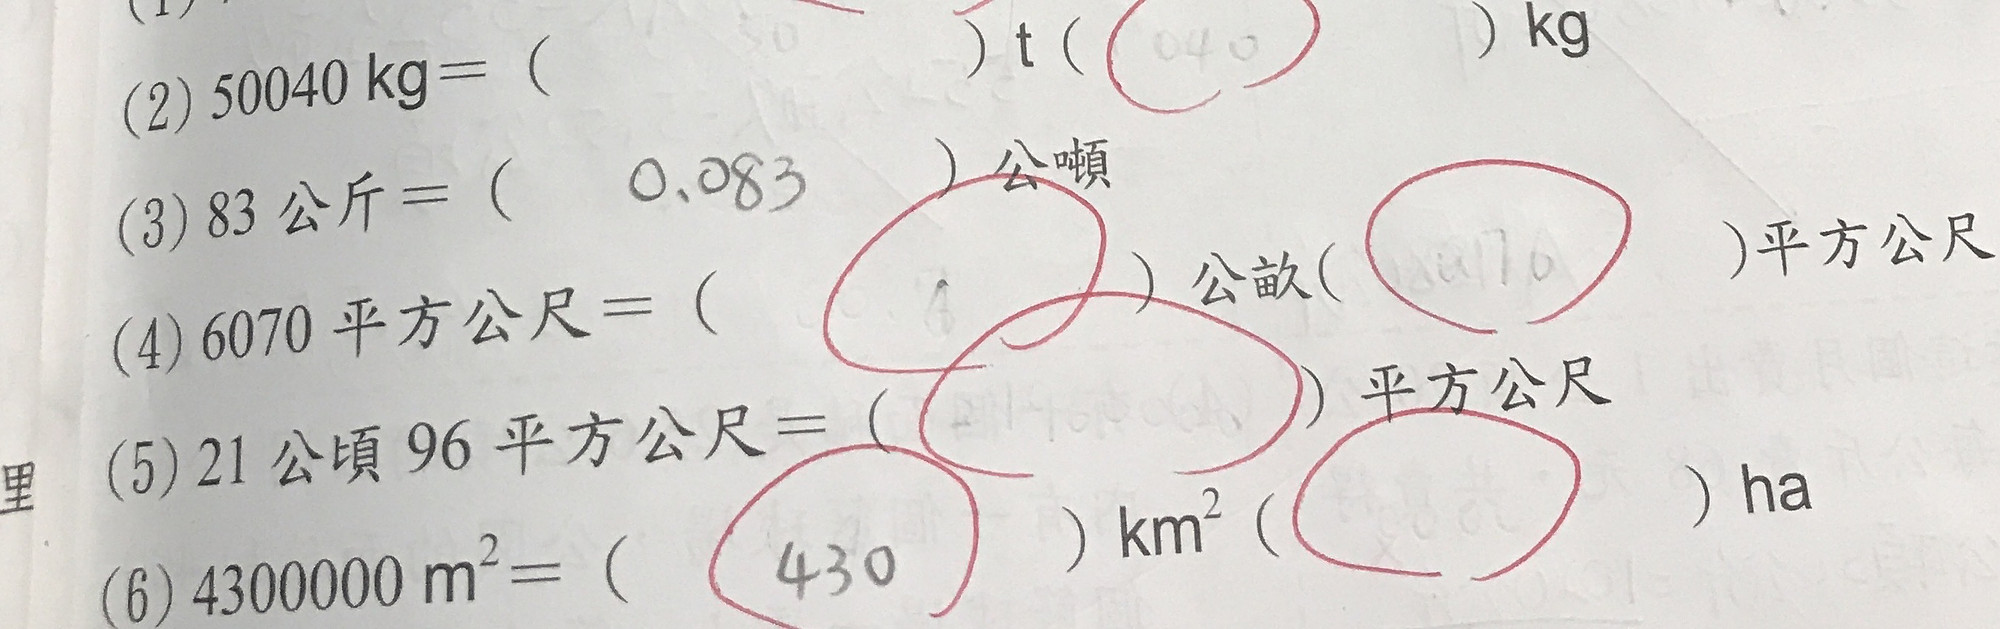 (2) 50040 kg=( )t( 040 )kg
(3) 83 公斤=( 0.083 )公噸
(4) 6070 平方公尺=( )公畝( )平方公尺
(5) 21 公頃 96 平方公尺=( )平方公尺
里
(6) 4300000 m²=( 430 )km²( )ha